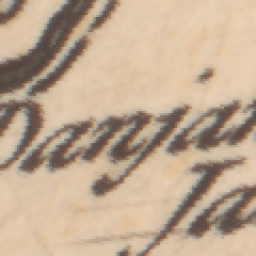 Danjan
Ja